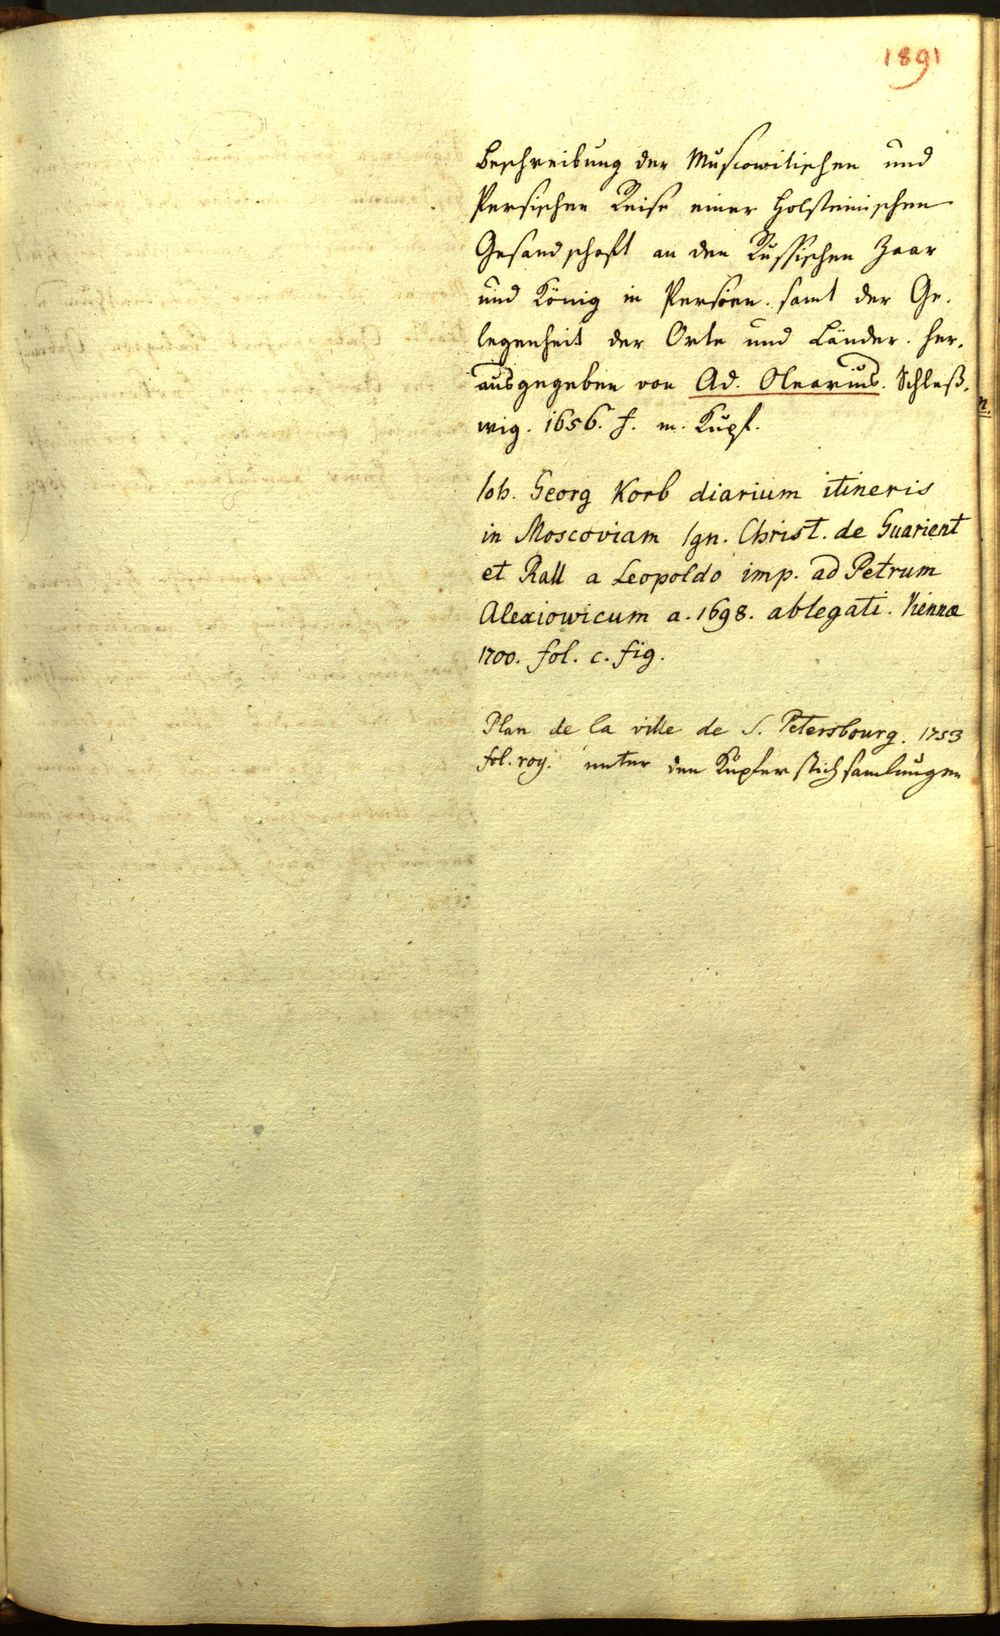 1891
Beschreibung der Muscowitischen und
Persischen Reise einer Holsteinischen
Gesandschaft an den Russischen Zaar
und König in Persien. samt der Ge-
legenheit der Orte und Länder. her-
ausgegeben von Ad. Olearius. Schleß-
wig. 1656. f. m. Kupf.
Joh. Georg Korb diarium itineris
in Moscoviam Ign. Christ. de Guarient
et Rall a Leopoldo imp. ad Petrum
Alexiowicum a. 1698. ablegati. Viennæ
1700. fol. c. fig.
Plan de la ville de S. Petersbourg. 1753
fol. roy. unter den Kupferstichsamlungen